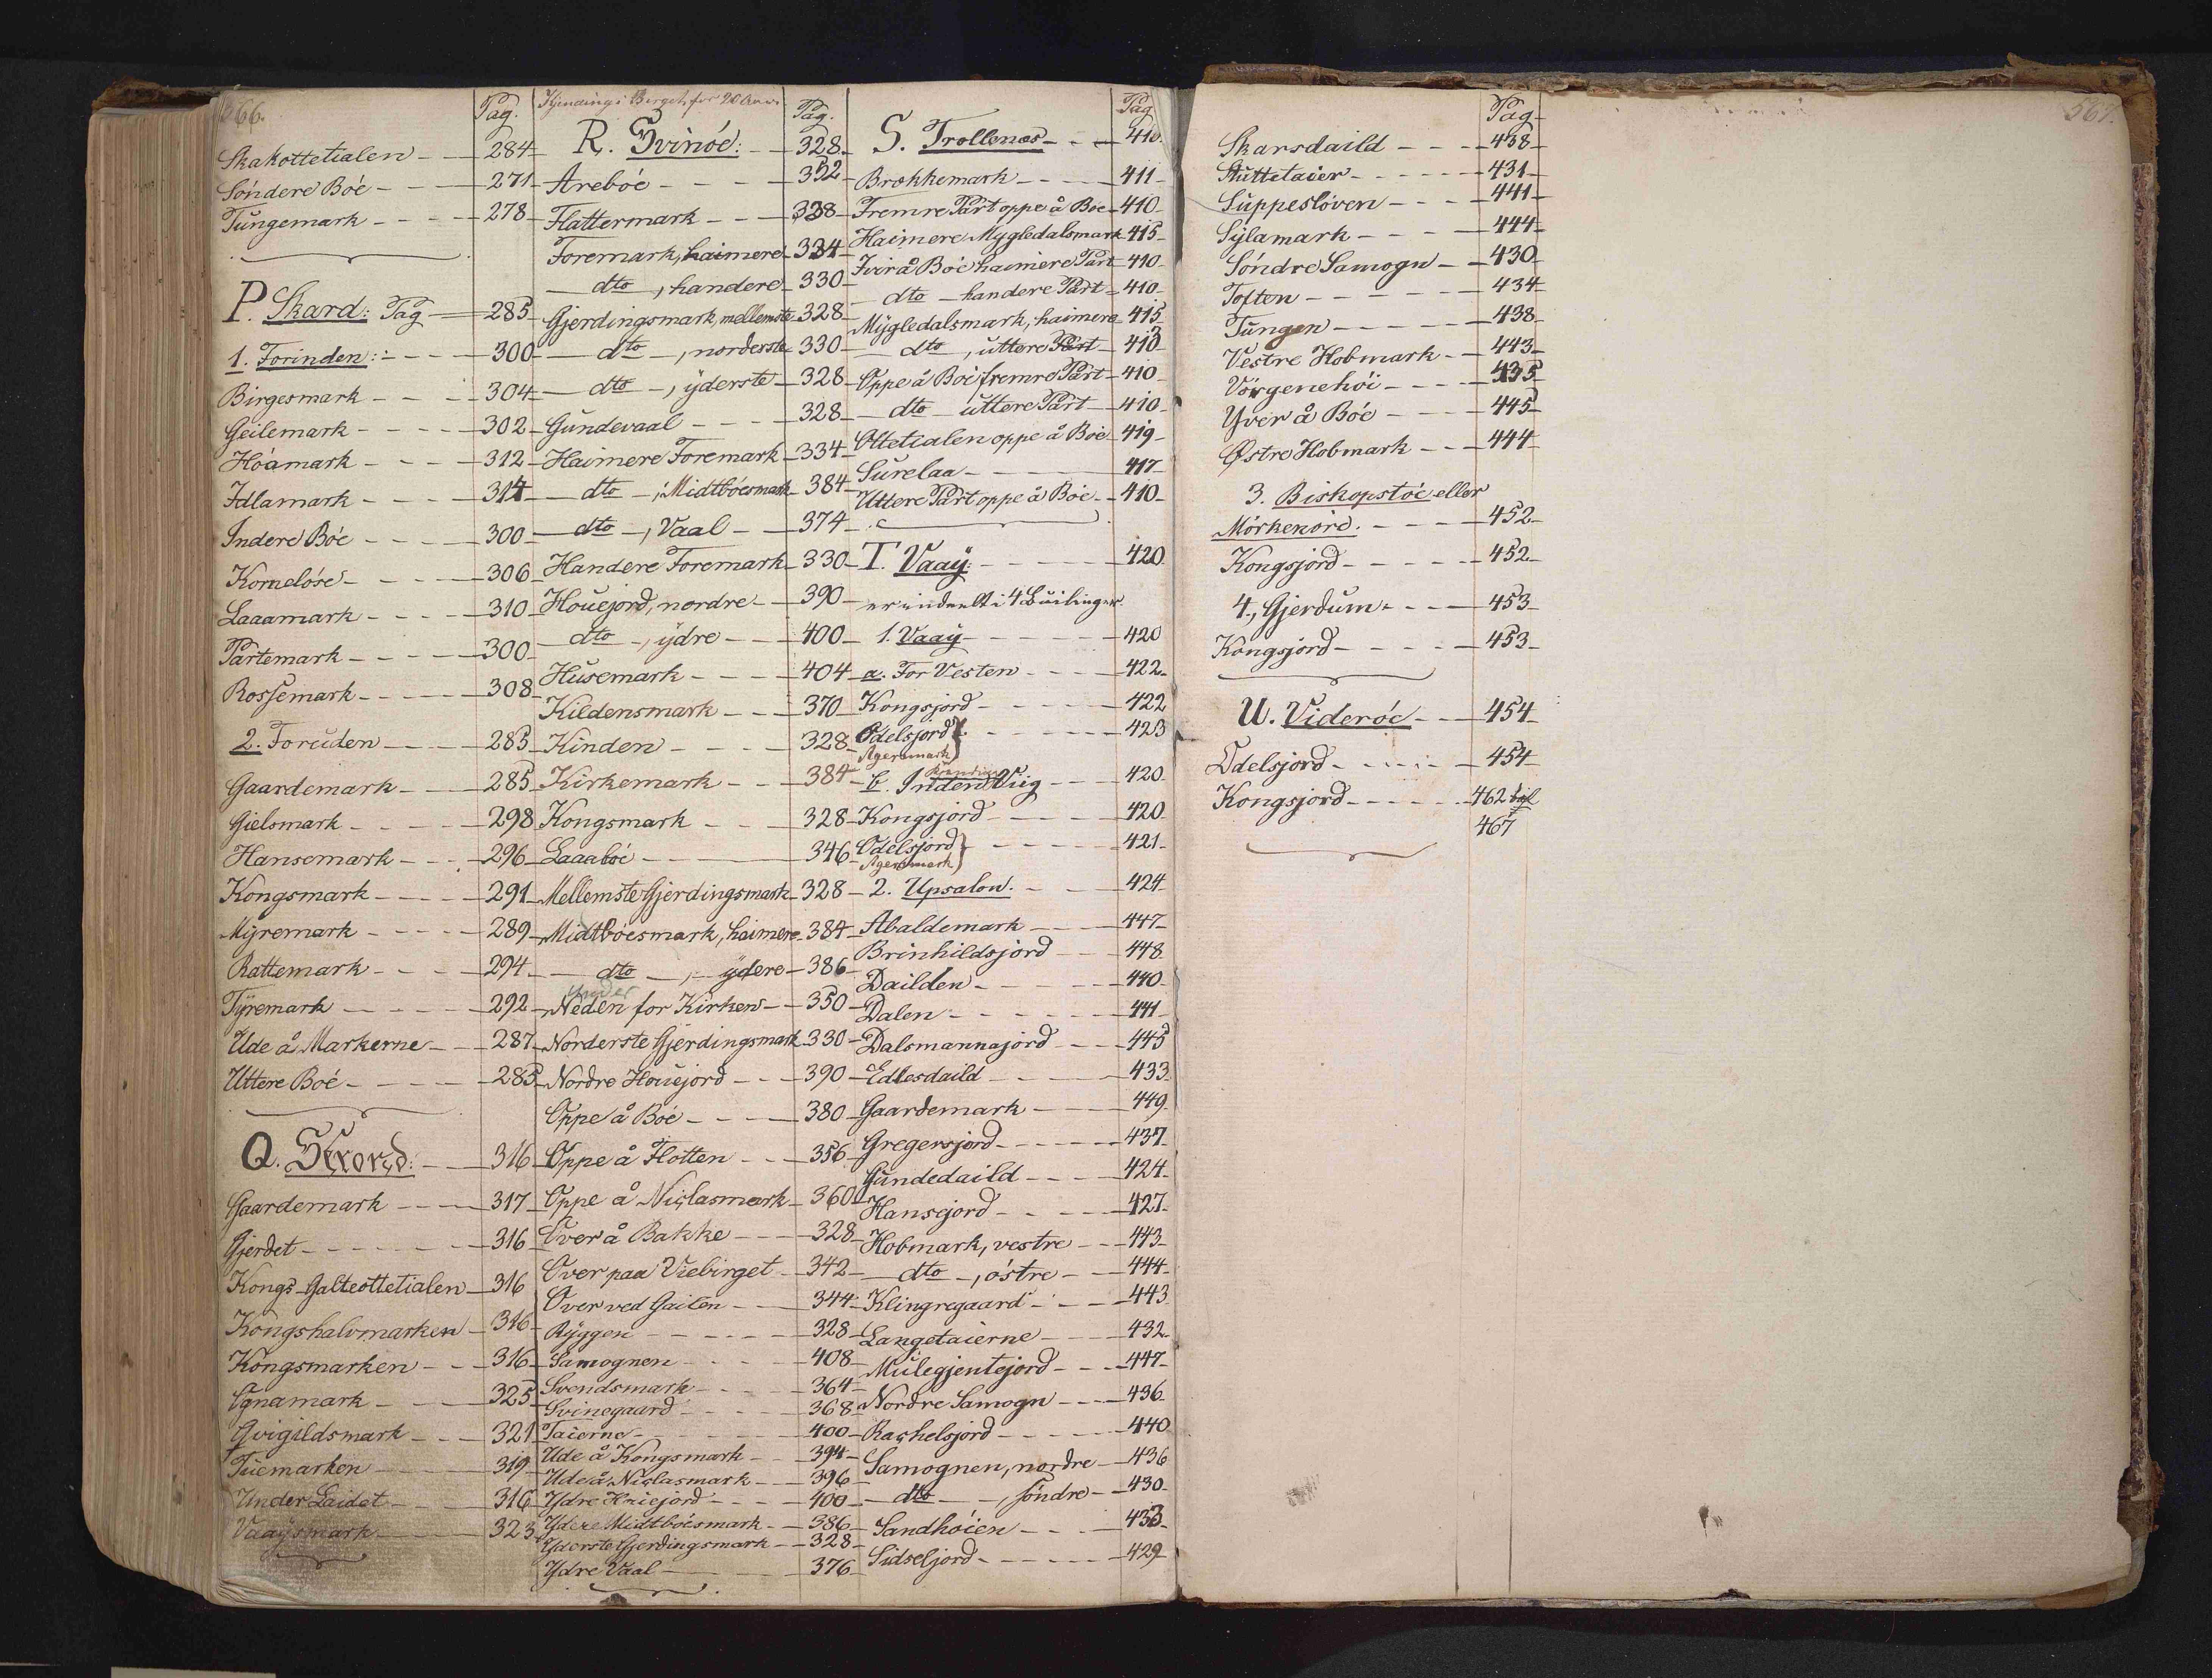 566.
Pag.
Skakottetialen 284
Söndere Böe 271
Tungemark 278
P. Skard: Pag 285
1. Forinden: 300
Birgesmark 304
Geilemark 302
Höamark 312
Idlamark 314
Indere Böe 300
Korneløse 306
Laaamark 310
Partemark 300
Rossemark 308
2. Foruden 285
Gaardemark 285
Gielsmark 298
Hansemark 296
Kongsmark 291
Myremark 289
Rattemark 294
Tyremark 292
Ude å Markerne 287
Uttere Boé 285
Q. Skord: 316
Gaardemark 317
Gjerdet 316
Kongs-Galteottetialen 316
Kongshalvmarken 316
Kongsmarken 316
Ognamark 325
Qvigildsmark 321
Tuemarken 319
Under Leidet 316
Vaaysmark 323
for 20
Pag.
R. Svinöe: 328
Areböe 352
Flattermark 338
Foremark, haimere 334
dto, handere 330
Gjerdingsmark, mellemste 328
dto, norderste 330
dto, yderste 328
Gundevaal 328
Haimere Foremark 334
dto, Midtböesmark 384
dto, Vaal 374
Handere Foremark 330
Houejord, nordre 390
dto, ydre 400
Husemark 404
Kildensmark 370
Kinden 328
Kirkemark 384
Kongsmark 328
Laaaböe 346
Mellemste Gjerdingsmark 328
Midtböesmark, haimere 384
dto, ydere 386
Neden for Kirken 350
Norderste Gjerdingsmark 330
Nordre Houejord 390
Oppe å Böe 380
Oppe å Flotten 356
Oppe å Niclasmark 360
Over å Bakke 328
Over paa Viebirget 342
Over ved Gailen 344
Ryggen 328
Samognen 408
Svendsmark 364
Svinegaard 368
Taierne 400
Ude å Kongsmark 394
Ude å Niclasmark 396
Ydre Houejord 400
Ydere Midtböesmark 386
Yderste Gjerdingsmark 328
Ydre Vaal 376
Pag
S. Trollenæs 410
Brokkemark 411
Fremre Part oppe å Böe 410
Haimere Mygledalsmark 415
Ivir å Böe haimere Part 410
dto handere Part 410
Mygledalsmark, haimere 415
dto, uttere Part 413
Oppe å Böe fremre Part 410
dto uttere Part 410
Ottetialen oppe å Böe 419
Surelaa 417
Uttere Part oppe å Böe 410
T. Vaay: 420
er inddeelt i 4 Builinger.
1. Vaay 420
a. For Vesten 422
Kongsjord 422
Odelsjord 423
Agersmark
b. Inden Viig 420
Kongsjord 420
Odelsjord 421
Agersmark
2. Upsalon. 424
Abaldemark 447
Brinhildsjord 448
Dailden 440
Dalen 441
Dalsmannajord 445
Edlesdaild 433
Gaardemark 449
Gregersjord 437
Gundedaild 424
Hansejord 427
Hobmark, vestre 443
dto, östre 444
Klingregaard 443
Langetaierne 432
Mulegjentejord 447
Nordre Samogn 436
Rachelsjord 440
Samognen, nordre 436
dto, söndre 430
Sandhöien 433
Sidseljord 429
567.
Pag
Skarsdaild 438
Stuttetaier 431
Suppeslöven 441
Sylamark 444
Söndre Samogn 430
Toften 434
Tungen 438
Vestre Hobmark 443
Vörgenehöi 435
Yver å Böe 445
Østre Hobmark 444
3. Biskopstöe eller
Mörkenöre. 452
Kongsjord 452
4. Gjerdum 453
Kongsjord 453
U. Videröe 454
Odelsjord 454
Kongsjord 462
467